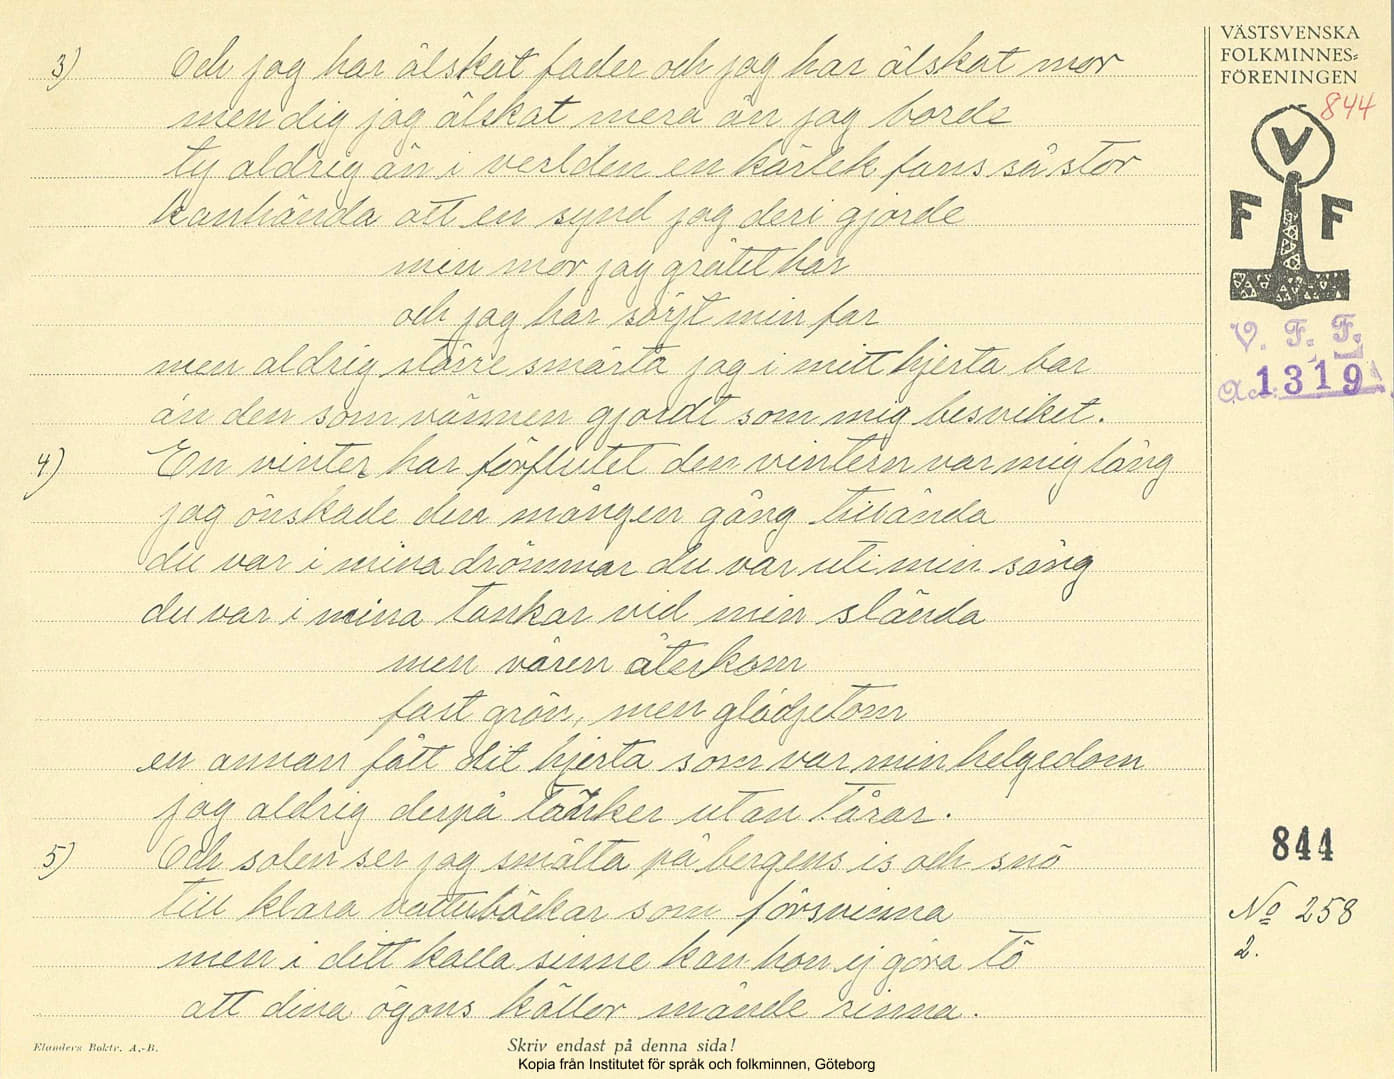 VÄSTSVENSKA
FOLKMINNES-
FÖRENINGEN
844
V
F F
V. F. F.
Acc. 1319
3) Och jag har älskat fader och jag har älskat mor
men dig jag älskat mera än jag borde
ty aldrig än i verlden en kärlek fans så stor
kanhända att en synd jag deri gjorde
min mor jag gråtet har
och jag har sörjt min far
men aldrig större smärta jag i mitt hjerta bar
än den som vännen gjordt som mig besviket.
4) En vinter har förflutet den vintern var mig lång
jag önskade den mången gång tillända
du var i mina drömmar du var uti min sång
du var i mina tankar vid min slända
men våren återkom
fast grön, men glädjetom
en annan fått dit hjerta som var min helgedom
jag aldrig derpå tänker utan tårar.
5) Och solen ser jag smälta på bergens is och snö
till klara vattubäckar som försvinna
men i ditt kalla sinne kan hon ej göra tö
att dina ögons källor månde rinna.
844
No 258
2.
Elanders Boktr. A.-B.
Skriv endast på denna sida!
Kopia från Institutet för språk och folkminnen, Göteborg